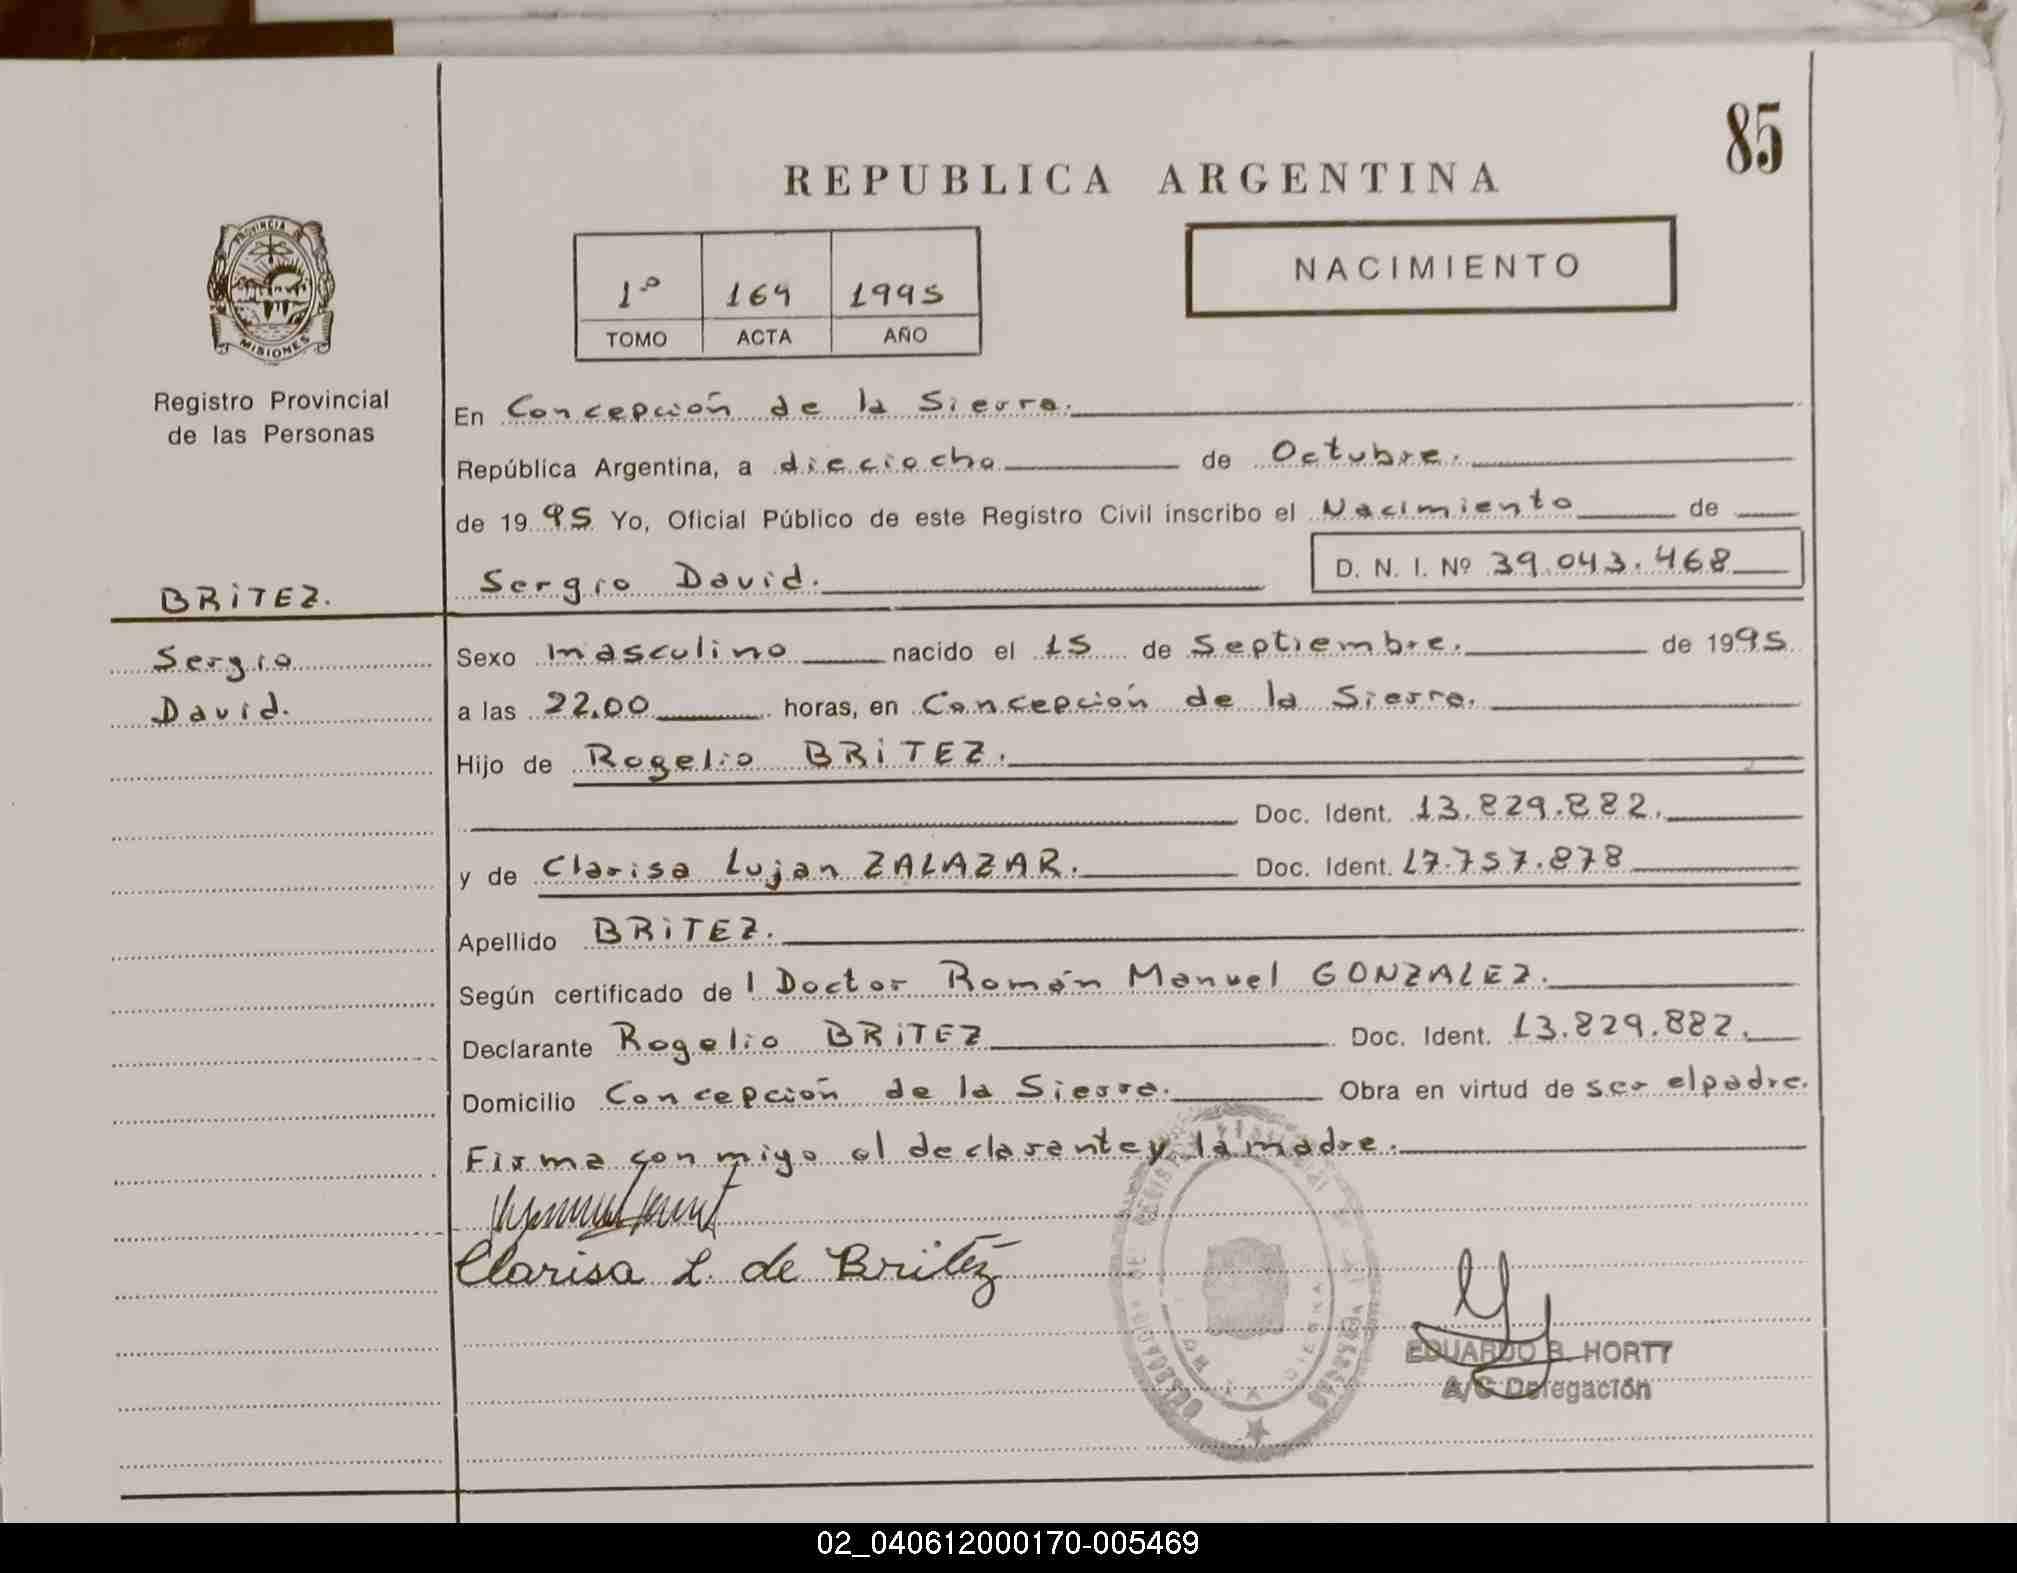 85
REPUBLICA ARGENTINA
PROVINCIA DE
MISIONES
1º 164 1995
TOMO ACTA AÑO
NACIMIENTO
Registro Provincial
de las Personas
En Concepción de la Sierra.
República Argentina, a dieciocho de Octubre.
de 1995 Yo, Oficial Público de este Registro Civil inscribo el Nacimiento de
Sergio David. D. N. I. Nº 39.043.468
BRITEZ.
Sergio
David.
Sexo masculino nacido el 15 de Septiembre. de 1995
a las 22.00 horas, en Concepción de la Sierra.
Hijo de Rogelio BRITEZ.
Doc. Ident. 13.829.882.
y de Clarisa Lujan ZALAZAR. Doc. Ident. 17.757.878
Apellido BRITEZ.
Según certificado de l Doctor Román Manuel GONZALEZ.
Declarante Rogelio BRITEZ Doc. Ident. 13.829.882.
Domicilio Concepción de la Sierra. Obra en virtud de ser el padre.
Firma conmigo el declarante y la madre.
Clarisa L. de Britéz
EDUARDO B. HORTT
A/C Delegación
02_040612000170-005469